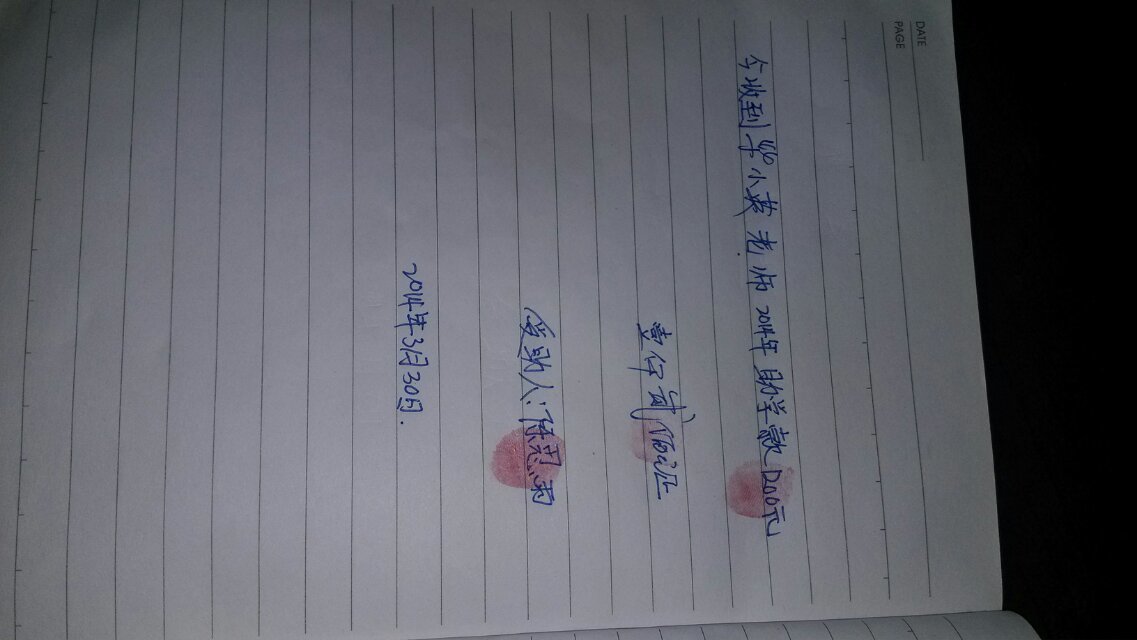 DATE
PAGE
今收到华小英老师2014年助学款1200元
壹仟贰佰元正
受助人:陈思雨
2014年3月30日.